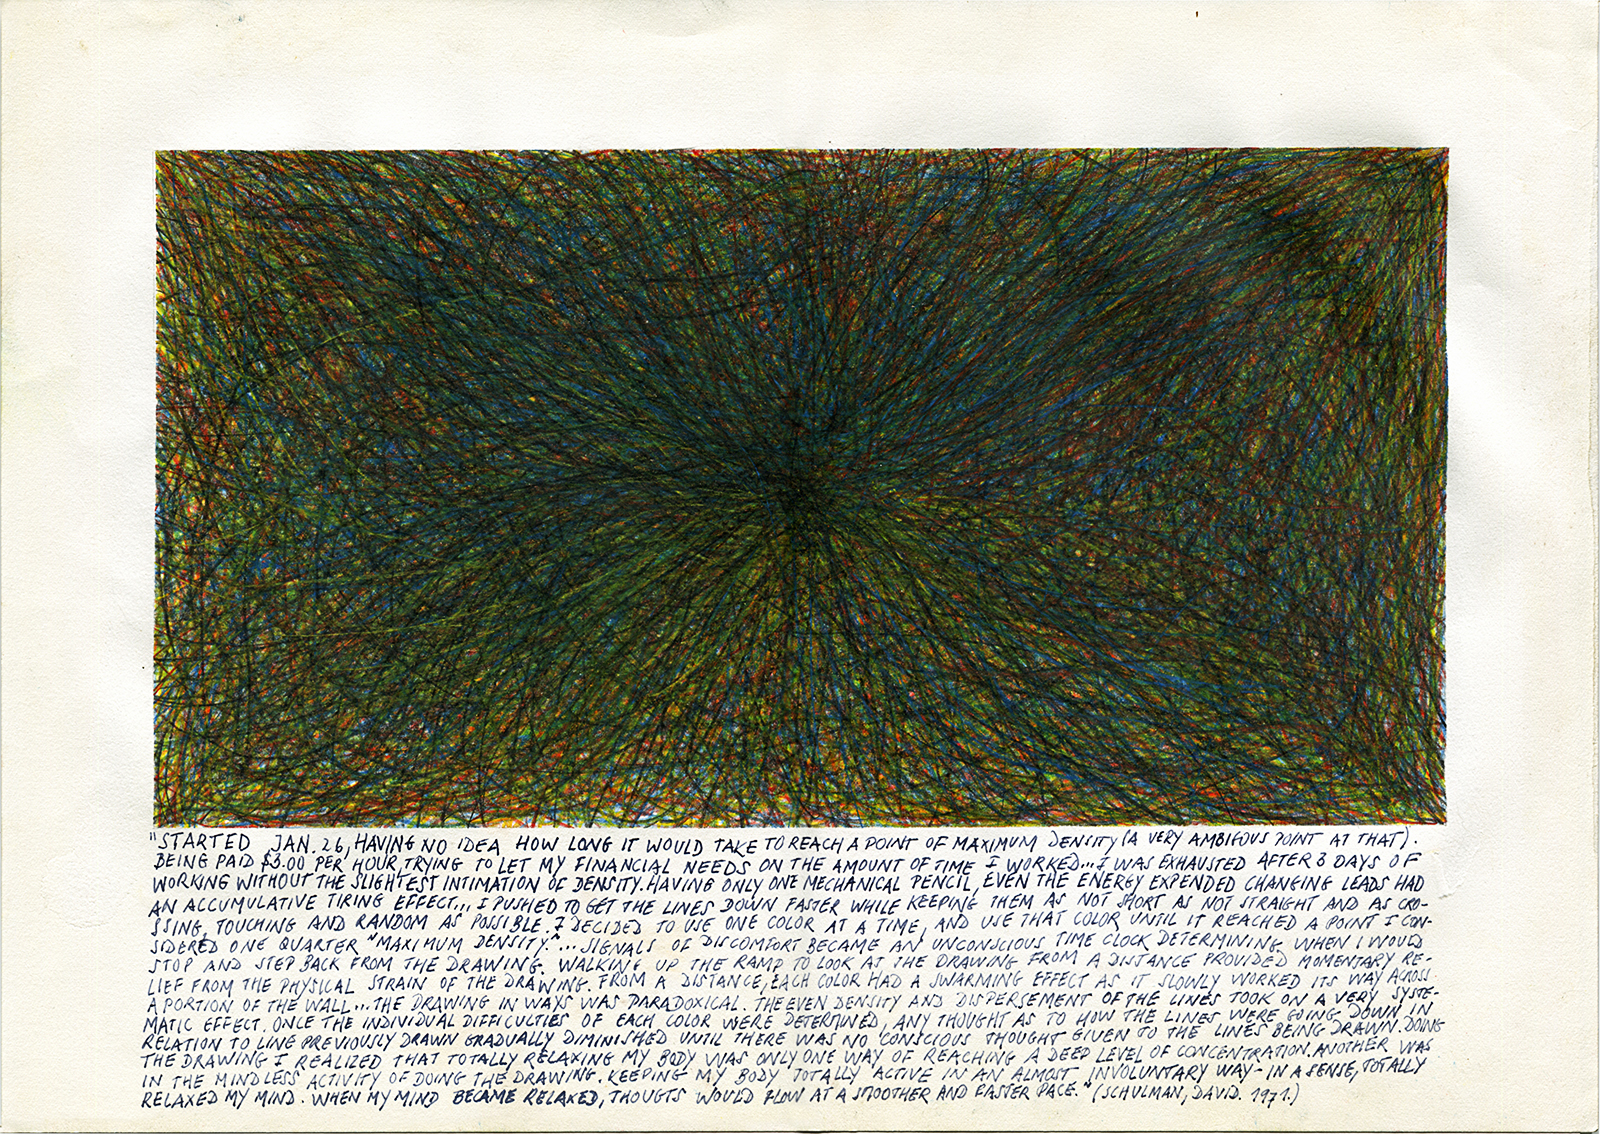 "STARTED JAN. 26, HAVING NO IDEA HOW LONG IT WOULD TAKE TO REACH A POINT OF MAXIMUM DENSITY (A VERY AMBIGOUS POINT AT THAT).
BEING PAID $3.00 PER HOUR, TRYING TO LET MY FINANCIAL NEEDS ON THE AMOUNT OF TIME I WORKED... I WAS EXHAUSTED AFTER 3 DAYS OF
WORKING WITHOUT THE SLIGHTEST INTIMATION OF DENSITY. HAVING ONLY ONE MECHANICAL PENCIL, EVEN THE ENERGY EXPENDED CHANGING LEADS HAD
AN ACCUMULATIVE TIRING EFFECT... I PUSHED TO GET THE LINES DOWN FASTER WHILE KEEPING THEM AS NOT SHORT AS NOT STRAIGHT AND AS CRO-
SSING, TOUCHING AND RANDOM AS POSSIBLE. I DECIDED TO USE ONE COLOR AT A TIME, AND USE THAT COLOR UNTIL IT REACHED A POINT I CON-
SIDERED ONE QUARTER "MAXIMUM DENSITY."... SIGNALS OF DISCOMFORT BECAME AN UNCONSCIOUS TIME CLOCK DETERMINING WHEN I WOULD
STOP AND STEP BACK FROM THE DRAWING. WALKING UP THE RAMP TO LOOK AT THE DRAWING FROM A DISTANCE PROVIDED MOMENTARY RE-
LIEF FROM THE PHYSICAL STRAIN OF THE DRAWING. FROM A DISTANCE, EACH COLOR HAD A SWARMING EFFECT AS IT SLOWLY WORKED ITS WAY ACROSS
A PORTION OF THE WALL... THE DRAWING IN WAYS WAS PARADOXICAL. THE EVEN DENSITY AND DISPERSEMENT OF THE LINES TOOK ON A VERY SYSTE-
MATIC EFFECT. ONCE THE INDIVIDUAL DIFFICULTIES OF EACH COLOR WERE DETERMINED, ANY THOUGHT AS TO HOW THE LINES WERE GOING DOWN IN
RELATION TO LINE PREVIOUSLY DRAWN GRADUALLY DIMINISHED UNTIL THERE WAS NO CONSCIOUS THOUGHT GIVEN TO THE LINES BEING DRAWN. DOING
THE DRAWING I REALIZED THAT TOTALLY RELAXING MY BODY WAS ONLY ONE WAY OF REACHING A DEEP LEVEL OF CONCENTRATION. ANOTHER WAS
IN THE MINDLESS ACTIVITY OF DOING THE DRAWING. KEEPING MY BODY TOTALLY ACTIVE IN AN ALMOST INVOLUNTARY WAY - IN A SENSE, TOTALLY
RELAXED MY MIND. WHEN MY MIND BECAME RELAXED, THOUGTS WOULD FLOW AT A SMOOTHER AND FASTER PACE." (SCHULMAN, DAVID. 1971.)